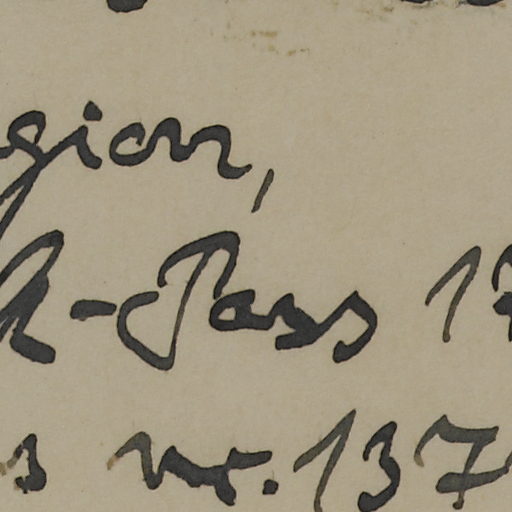 gion,
-Pass 1
nr. 137